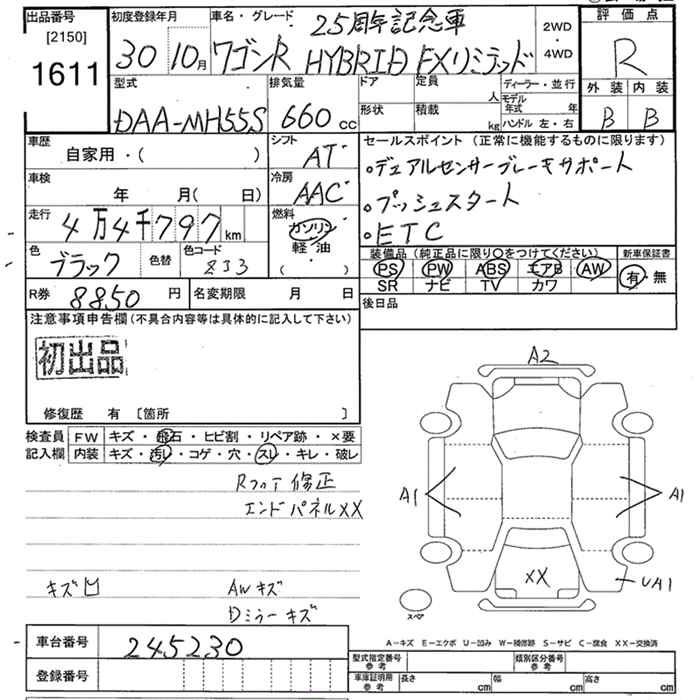 出品番号
[2150]
1611
初度登録年月
30 10月
車名・グレード
25周年記念車
ワゴンR HYBRID FXリミテッド
2WD
・
4WD
評価点
R
外装 内装
B B
型式
DAA-MH55S
排気量
660 cc
ドア
定員
人
形状
積載
kg
ディーラー・並行
モデル年式 年
ハンドル 左・右
車歴
自家用・( )
シフト
AT
車検
年 月( 日)
冷房
AAC
走行
4万4千797km
燃料
ガソリン
軽油
( )
色
ブラック
色替
色コード
ZJ3
R券 8850 円
名変期限 月 日
セールスポイント (正常に機能するものに限ります)
・デュアルセンサーブレーキサポート
・プッシュスタート
・ETC
装備品 (純正品に限り○をつけてください)
新車保証書
PS PW ABS エアB AW
SR ナビ TV カワ
有・無
後日品
注意事項申告欄 (不具合内容等は具体的に記入して下さい)
初出品
修復歴 有 [箇所 ]
検査員
記入欄
FW キズ・飛石・ヒビ割・リペア跡・×要
内装 キズ・汚レ・コゲ・穴・スレ・キレ・破レ
Rフロア修正
エンドパネルXX
キズ凹
AWキズ
Dミラーキズ
A2
A1
A1
XX
UA1
スペア
車台番号 245230
登録番号
A-キズ E-エクボ U-凹み W-補修跡 S-サビ C-腐食 XX-交換済
型式指定番号
参考
類別区分番号
参考
車庫証明用
参考
長さ cm 幅 cm 高さ cm